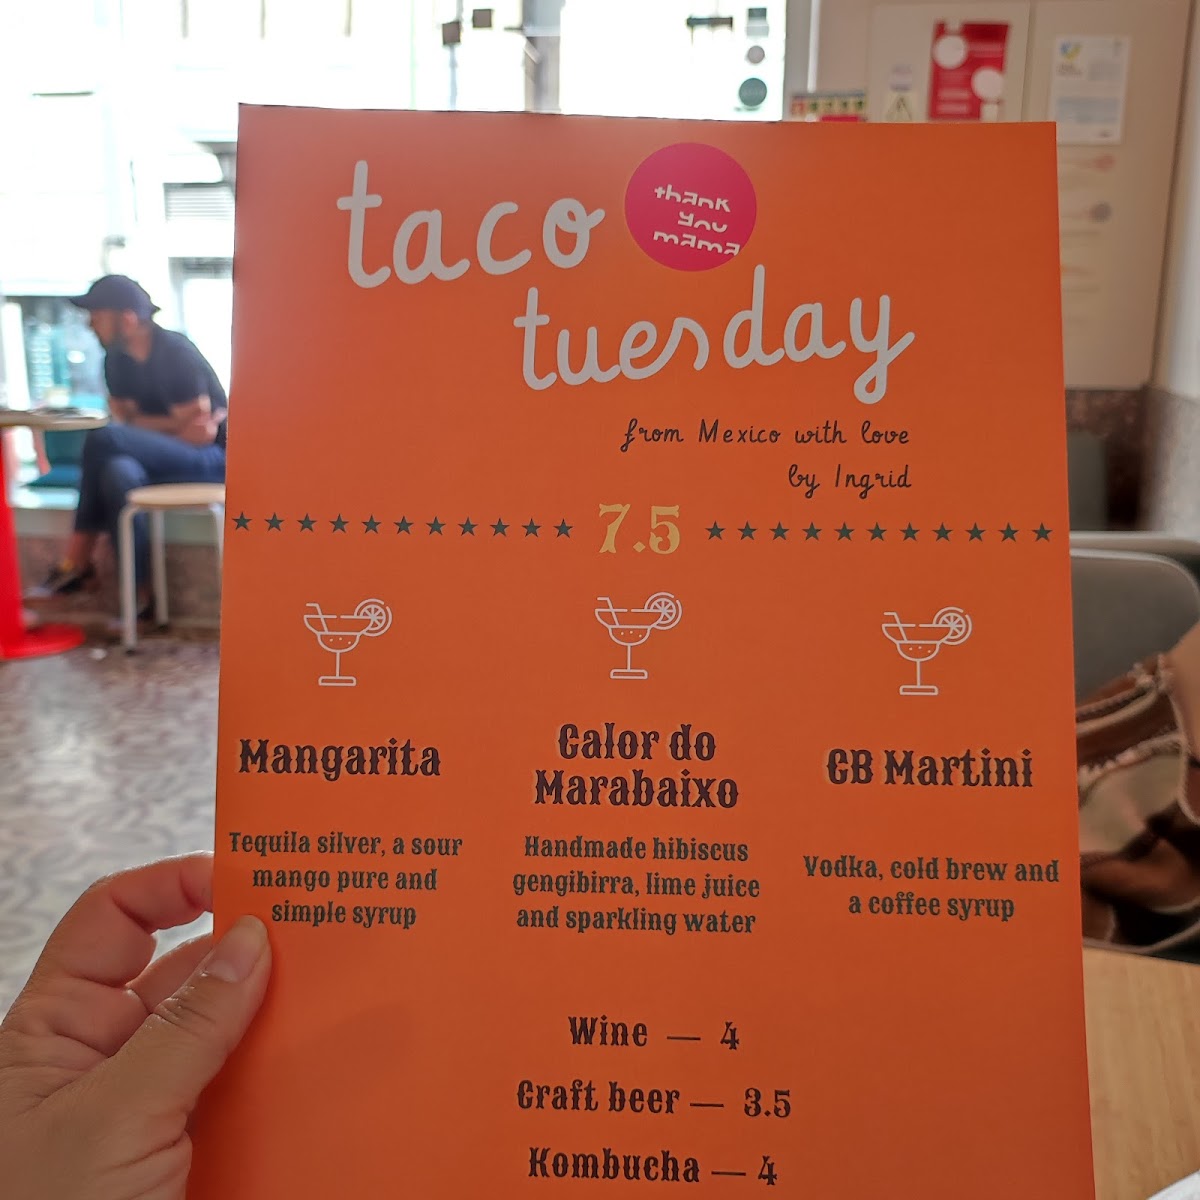 taco
thank
you
mama
tuesday
from Mexico with love
by Ingrid
7.5
Mangarita
Tequila silver, a sour
mango pure and
simple syrup
Calor do
Marabaixo
Handmade hibiscus
gengibirra, lime juice
and sparkling water
CB Martini
Vodka, cold brew and
a coffee syrup
Wine — 4
Craft beer — 3.5
Kombucha — 4